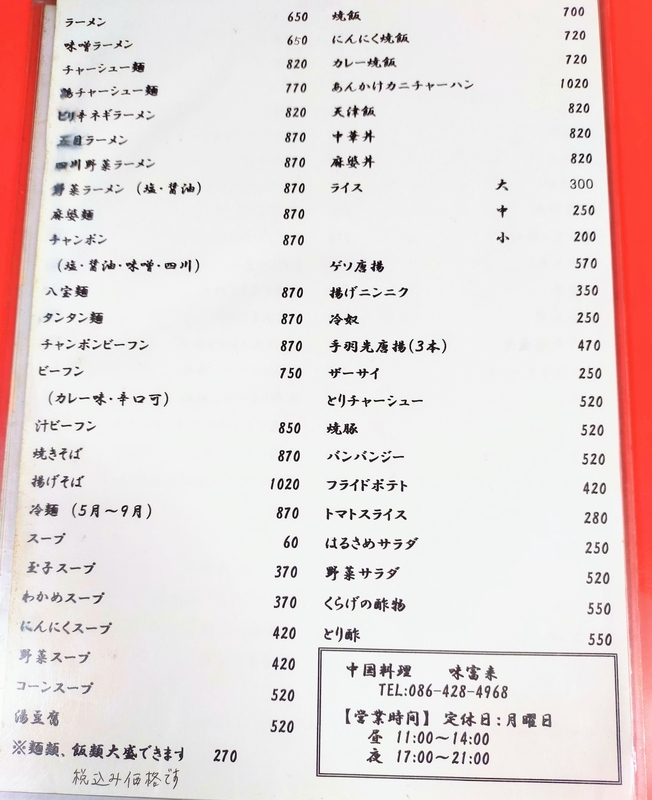 ラーメン 650
味噌ラーメン 650
チャーシュー麺 820
鶏チャーシュー麺 770
ピリ辛ネギラーメン 820
五目ラーメン 870
四川野菜ラーメン 870
野菜ラーメン（塩・醤油） 870
麻婆麺 870
チャンポン 870
（塩・醤油・味噌・四川）
八宝麺 870
タンタン麺 870
チャンポンビーフン 870
ビーフン 750
（カレー味・辛口可）
汁ビーフン 850
焼きそば 870
揚げそば 1020
冷麺（5月～9月） 870
スープ 60
玉子スープ 370
わかめスープ 370
にんにくスープ 420
野菜スープ 420
コーンスープ 520
湯豆腐 520
※麺類、飯類大盛できます 270
税込み価格です
焼飯 700
にんにく焼飯 720
カレー焼飯 720
あんかけカニチャーハン 1020
天津飯 820
中華丼 820
麻婆丼 820
ライス 大 300
中 250
小 200
ゲソ唐揚 570
揚げニンニク 350
冷奴 250
手羽先唐揚(3本) 470
ザーサイ 250
とりチャーシュー 520
焼豚 520
バンバンジー 520
フライドポテト 420
トマトスライス 280
はるさめサラダ 250
野菜サラダ 520
くらげの酢物 550
とり酢 550
中国料理 味富来
TEL:086-428-4968
【営業時間】 定休日：月曜日
昼 11:00～14:00
夜 17:00～21:00